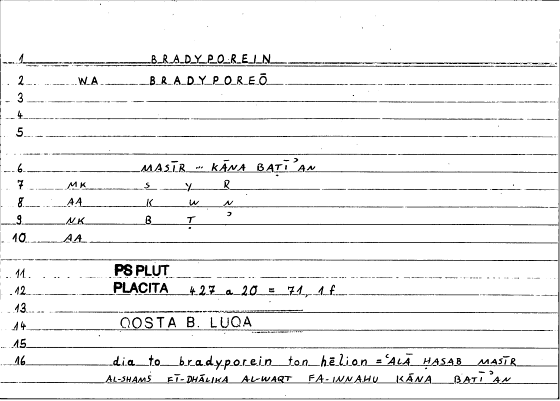 1 BRADYPOREIN
2 WA BRADYPOREŌ
3
4
5
6 MASĪR ... KĀNA BAṬĪʾAN
7 MK S Y R
8 AA K W N
9 NK B Ṭ ʾ
10 AA
11 PS PLUT
12 PLACITA 427 a 20 = 71, 1 f
13
14 QOSTA B. LUQA
15
16 dia to bradyporein ton hēlion = ʿALĀ ḤASAB MASĪR
AL-SHAMS FĪ-DHĀLIKA AL-WAQT FA-INNAHU KĀNA BAṬĪʾAN